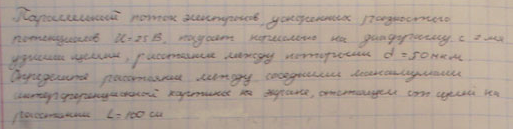 Параллельный поток электронов, ускоренных разностью
потенциалов U = 25 В, падает нормально на диафрагму с 2-мя
узкими щелями, расстояние между которыми d = 50 мкм
Определите расстояние между соседними максимумами
интерференционной картины на экране, отстоящем от щелей на
расстоянии L = 100 см